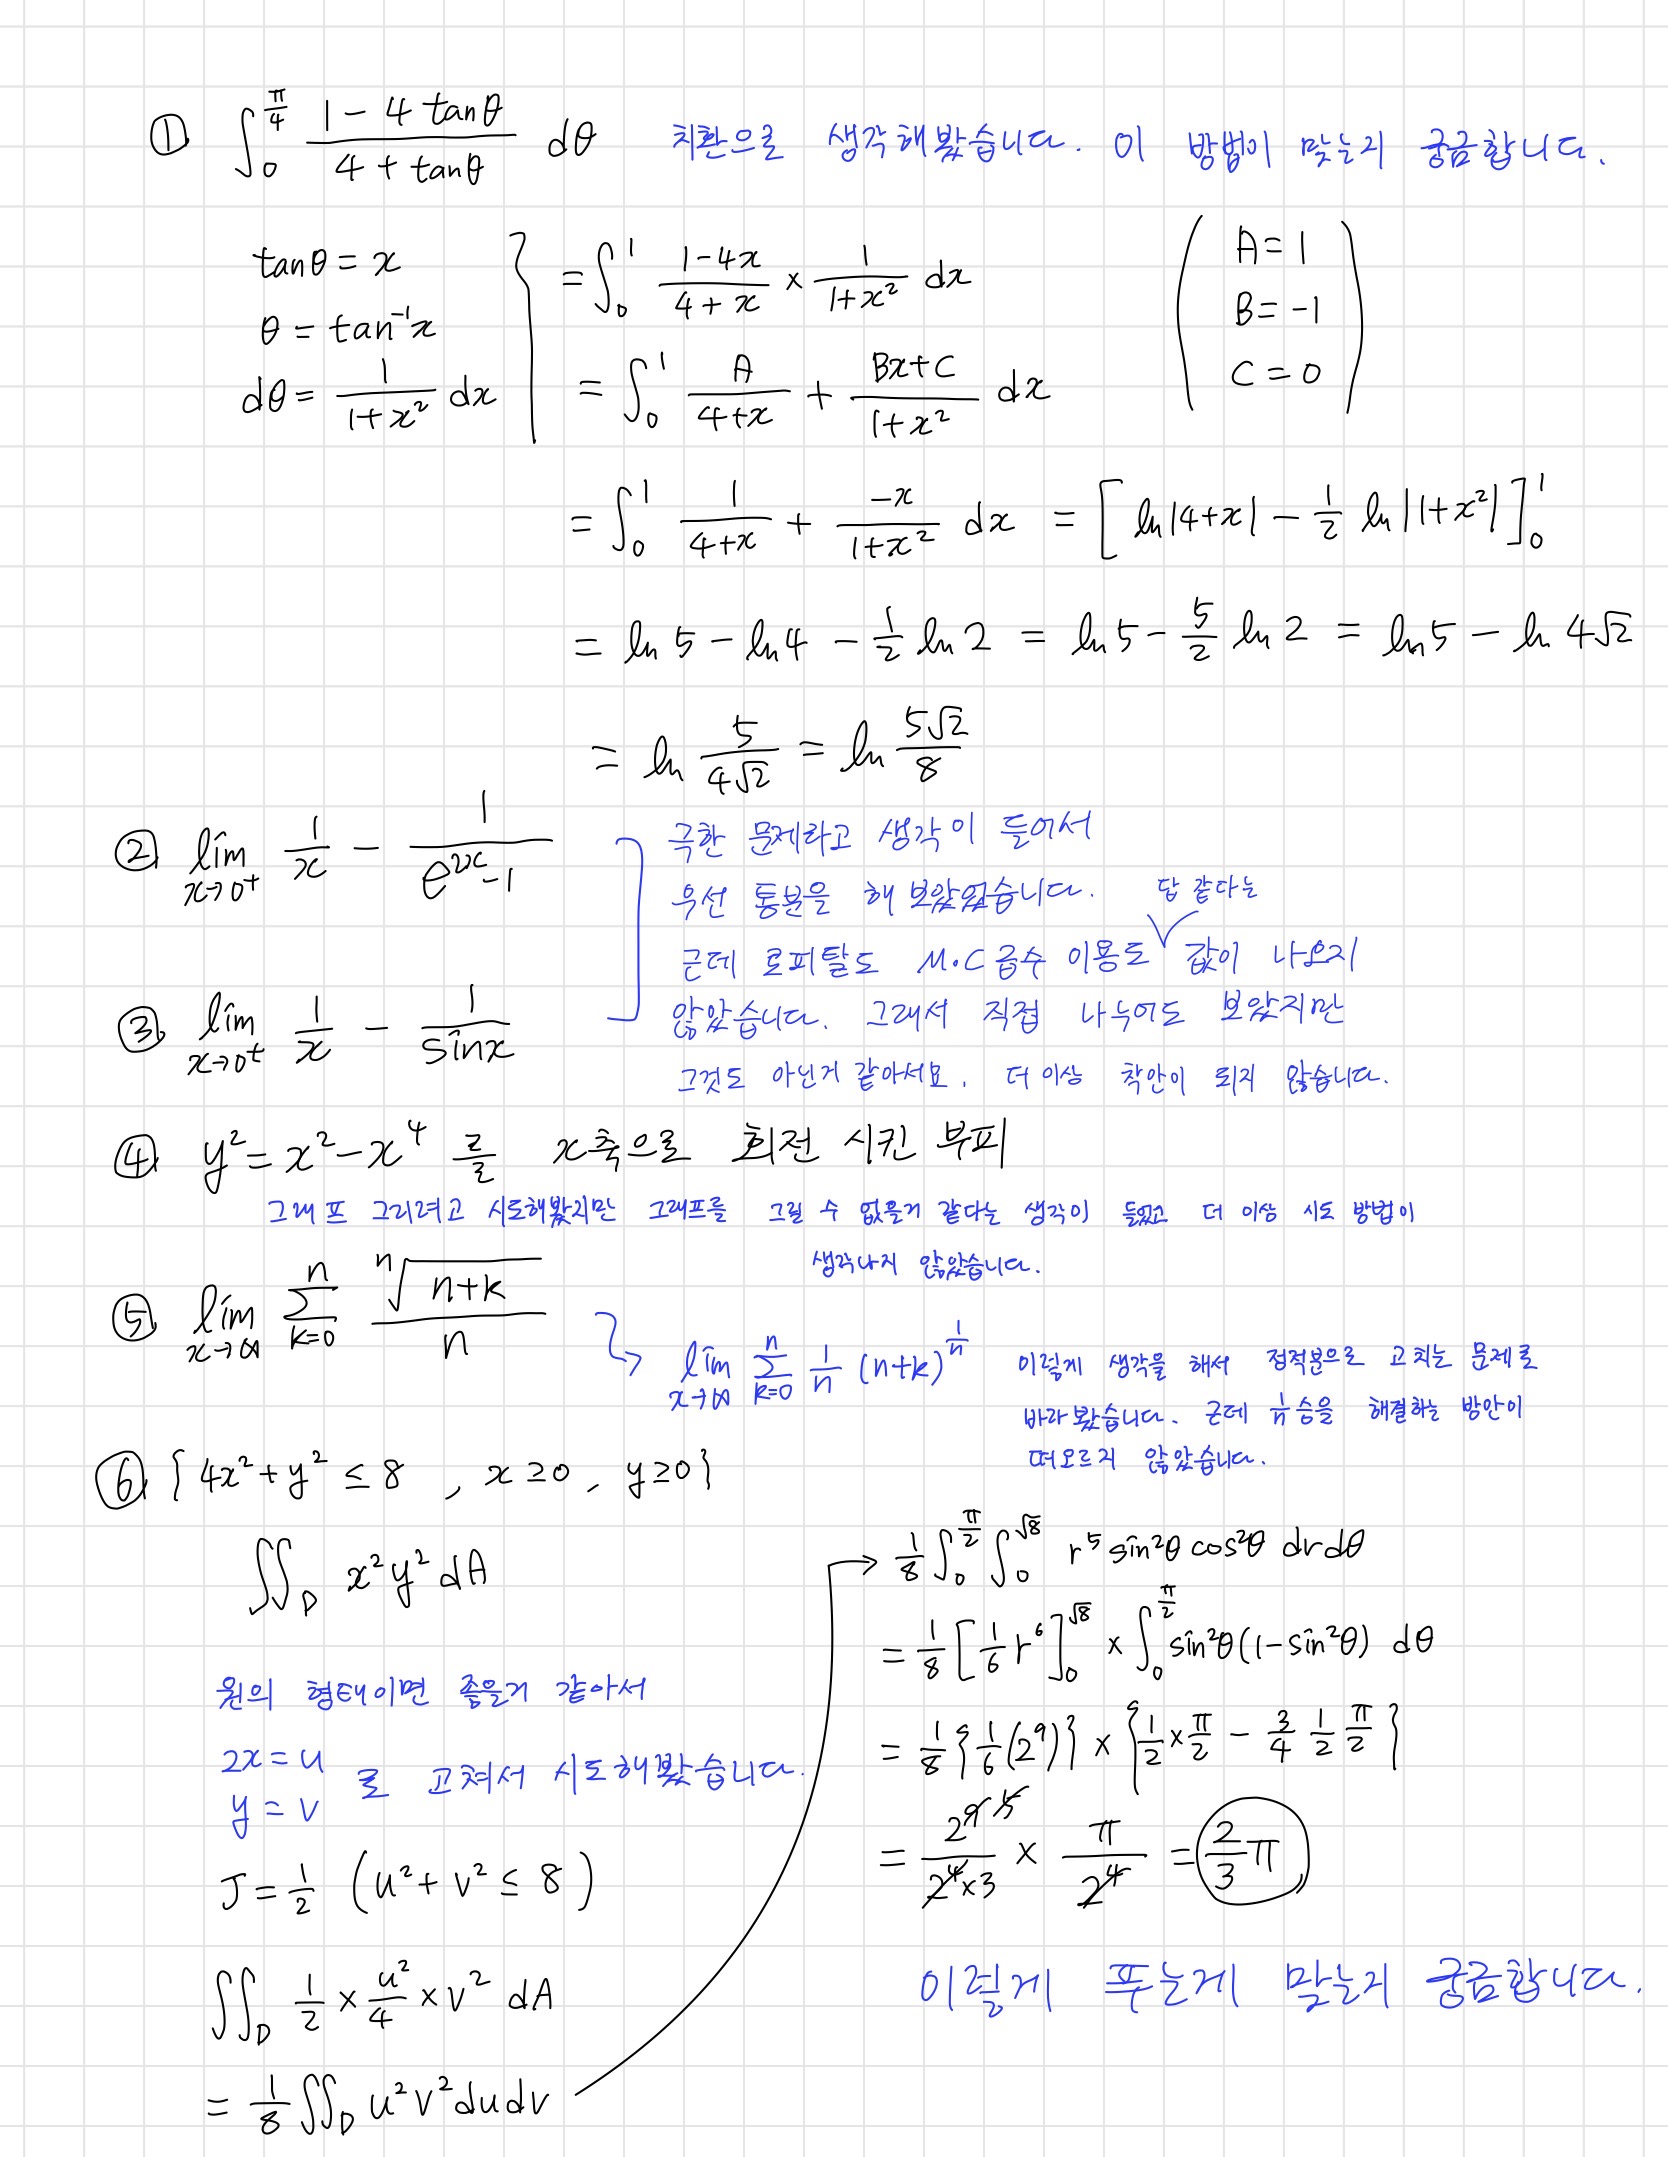 ① ∫₀^{π/4} (1 - 4 tanθ)/(4 + tanθ) dθ 치환으로 생각해봤습니다. 이 방법이 맞는지 궁금합니다.
tanθ = x
θ = tan⁻¹x
dθ = 1/(1+x²) dx
= ∫₀¹ (1-4x)/(4+x) × 1/(1+x²) dx
= ∫₀¹ A/(4+x) + (Bx+C)/(1+x²) dx
A = 1
B = -1
C = 0
= ∫₀¹ 1/(4+x) + (-x)/(1+x²) dx = [ln|4+x| - 1/2 ln|1+x²|]₀¹
= ln5 - ln4 - 1/2 ln2 = ln5 - 5/2 ln2 = ln5 - ln4√2
= ln 5/(4√2) = ln 5√2/8
② lim_{x→0+} 1/x - 1/(e^{2x}-1)
③ lim_{x→0+} 1/x - 1/sinx
극한 문제라고 생각이 들어서
우선 통분을 해 보았었습니다. 답 같다는
근데 로피탈도 M.C 급수 이용도 ∨ 값이 나오지
않았습니다. 그래서 직접 나누어도 보았지만
그것도 아닌거 같아서요. 더이상 착안이 되지 않습니다.
④ y² = x² - x⁴ 를 x축으로 회전 시킨 부피
그래프 그리려고 시도해봤지만 그래프를 그릴 수 없을거 같다는 생각이 들었고 더 이상 시도 방법이
생각나지 않았습니다.
⑤ lim_{x→∞} Σ_{k=0}^{n} ⁿ√(n+k)/n
lim_{x→∞} Σ_{k=0}^{n} 1/n (n+k)^{1/n} 이렇게 생각을 해서 정적분으로 고치는 문제로
바라봤습니다. 근데 1/n 승을 해결하는 방안이
떠오르지 않았습니다.
⑥ {4x²+y² ≤ 8 , x≥0, y≥0}
∬_D x²y² dA
원의 형태이면 좋을거 같아서
2x = u
y = v
로 고쳐서 시도해봤습니다.
J = 1/2 (u²+v² ≤ 8)
∬_D 1/2 × u²/4 × v² dA
= 1/8 ∬_D u²v² du dv
→ 1/8 ∫₀^{π/2} ∫₀^{√8} r⁵ sin²θ cos²θ dr dθ
= 1/8 [1/6 r⁶]₀^{√8} × ∫₀^{π/2} sin²θ(1-sin²θ) dθ
= 1/8 {1/6 (2⁹)} × {1/2 × π/2 - 3/4 1/2 π/2}
= 2⁹ ⁵/(2⁴×3) × π/2⁴ = 2/3 π
이렇게 푸는게 맞는지 궁금합니다.